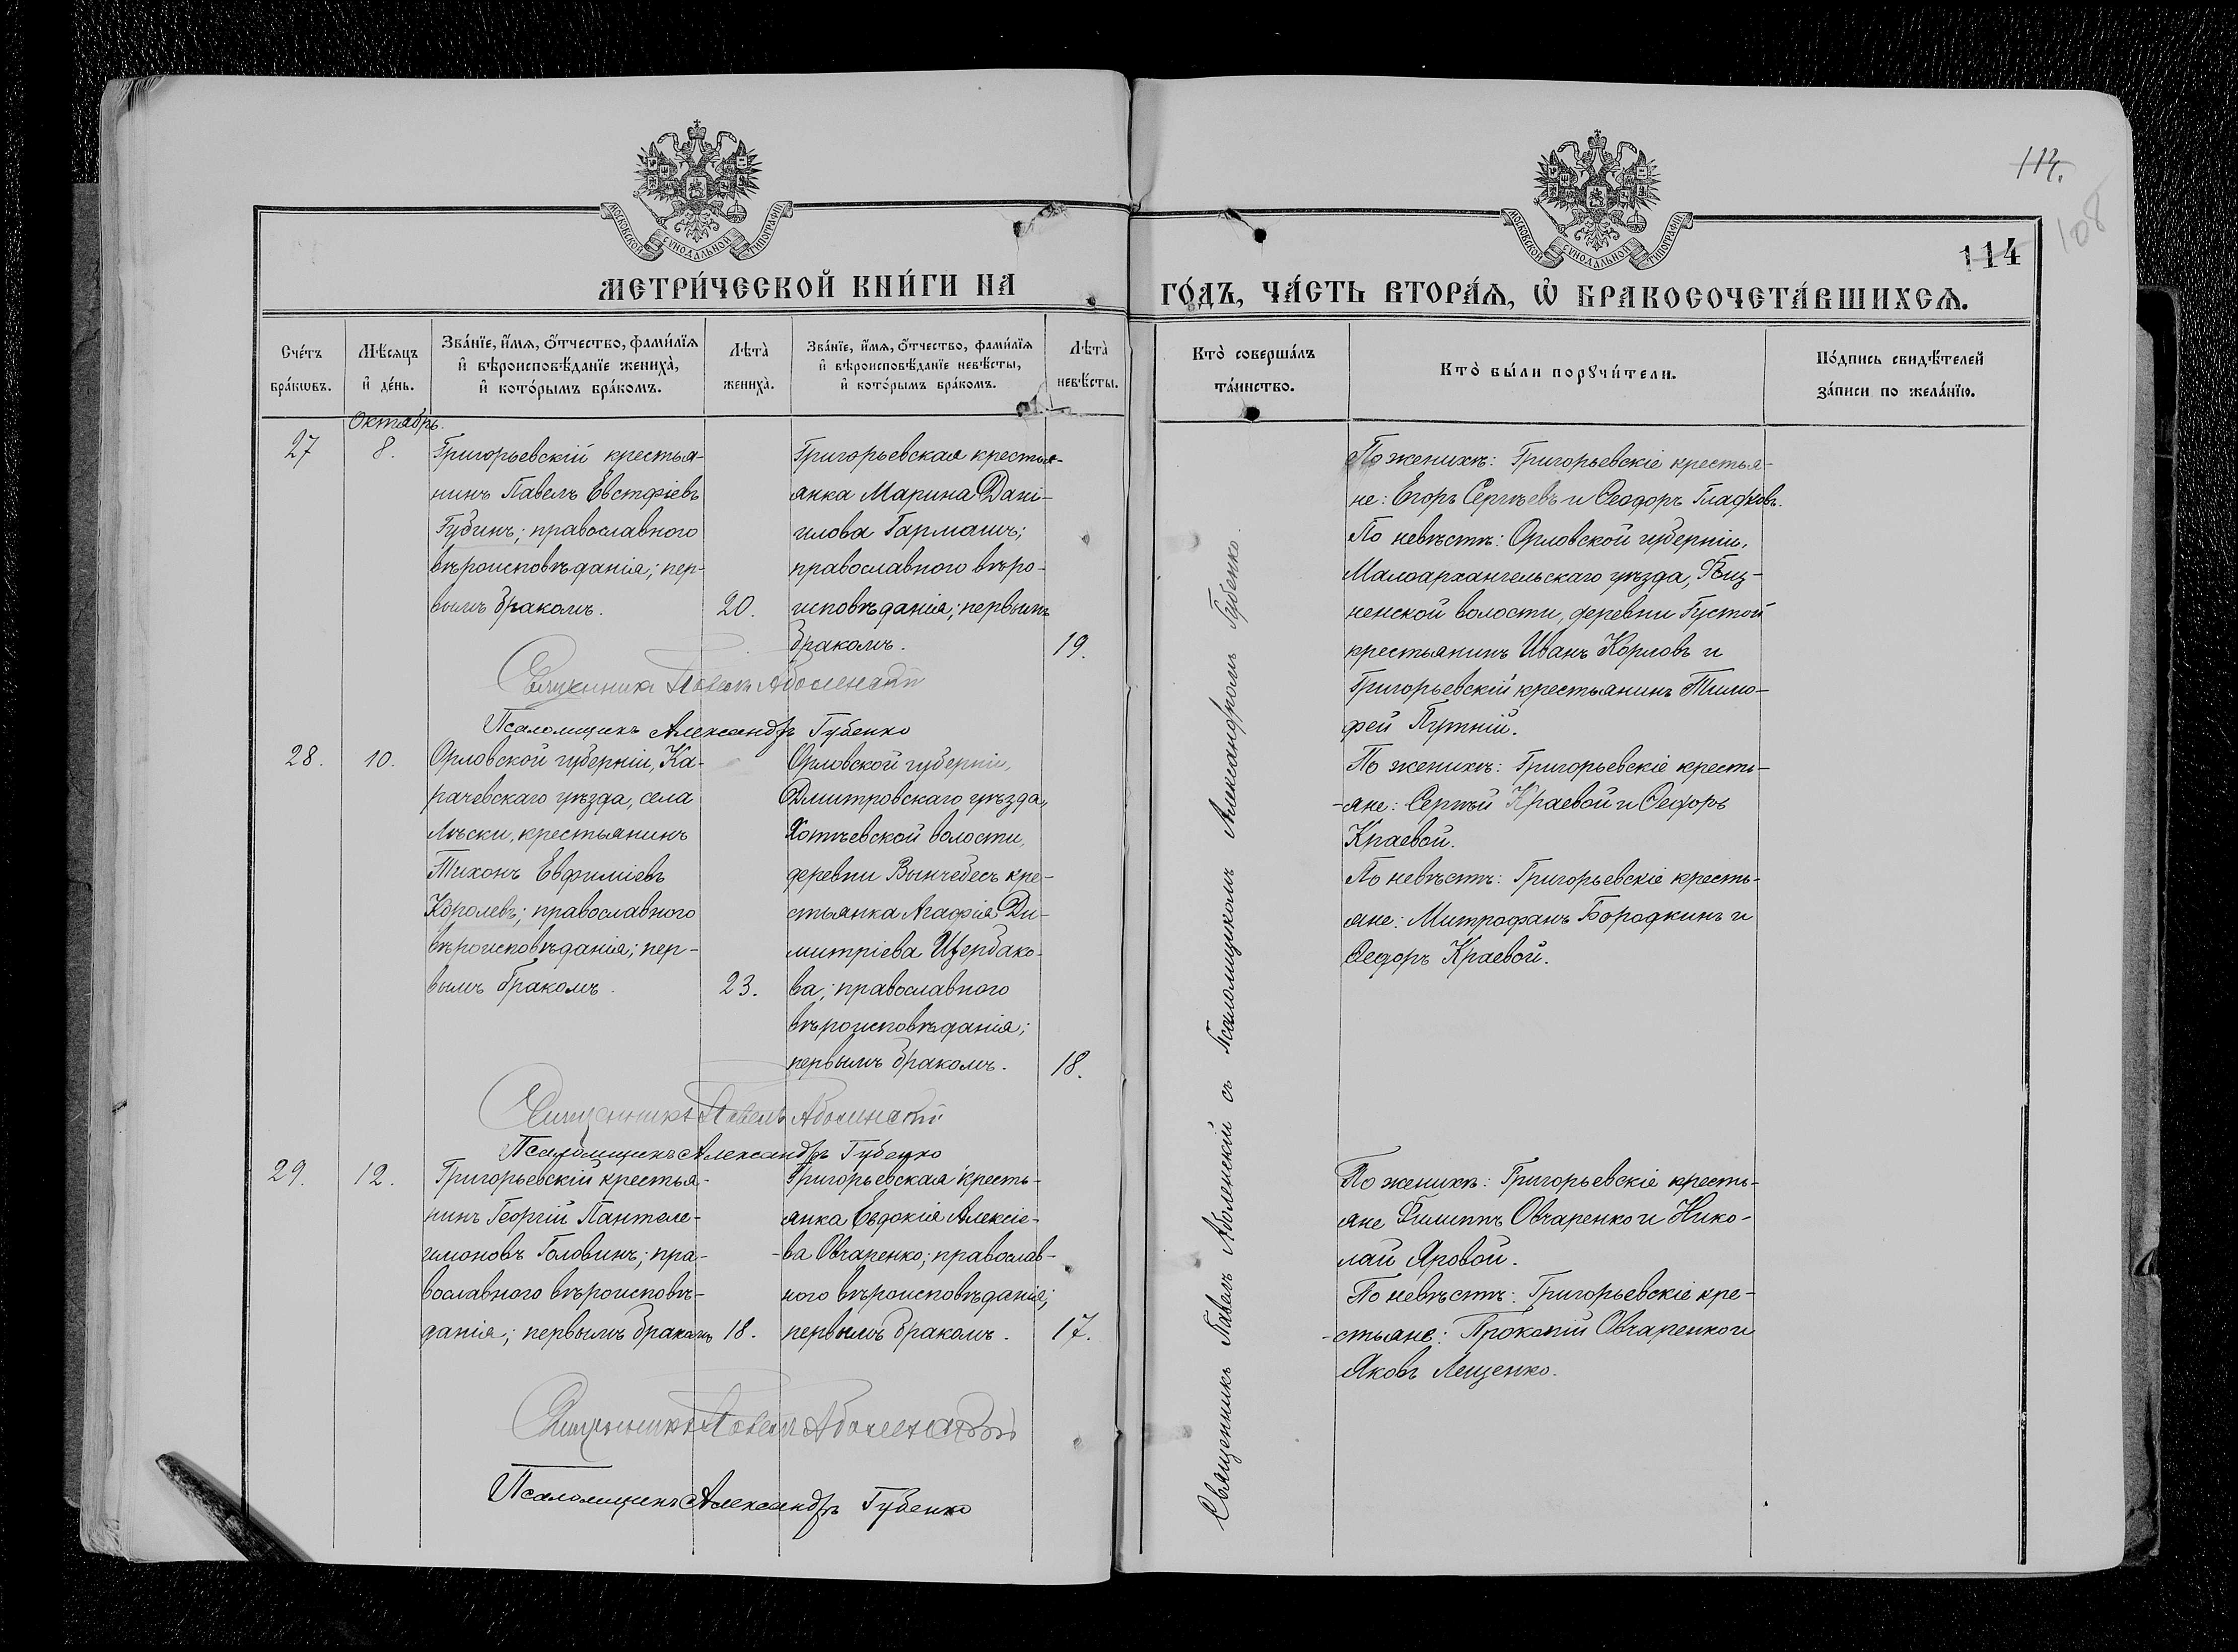 114.
108
МОСКОВСКОЙ СѴНОДАЛЬНОЙ ТИПОГРАФІИ
МОСКОВСКОЙ СѴНОДАЛЬНОЙ ТИПОГРАФІИ
114
МЕТРИ́ЧЕСКОЙ КНИ́ГИ НА
ГО́ДЪ, ЧА́СТЬ ВТОРА́Ѧ, Ѽ БРАКОСОЧЕТА́ВШИХСѦ.
Сче́тъ бра́кѡвъ.
Мѣ́сяцъ и҆ де́нь.
Зва́нїе, и҆́мѧ, ѻ҆́тчество, фами́лїѧ
и҆ вѣроисповѣ́данїе жениха̀,
и҆ кото́рымъ бра́комъ.
Лѣта̀ жениха̀.
Зва́нїе, и҆́мѧ, ѻ҆́тчество, фами́лїѧ
и҆ вѣроисповѣ́данїе невѣ́сты,
и҆ кото́рымъ бра́комъ.
Лѣта̀ невѣ́сты.
Кто̀ соверша́лъ
та́инство.
Кто̀ бы́ли порꙋчи́тели.
По́дпись свидѣ́телей
за́писи по жела́нїю.
Октябрь.
27
8.
Григорьевскій крестья-
нинъ Павелъ Евстфіевъ
Губинъ; православного
вѣроисповѣданія; пер-
вымъ бракомъ.
20.
Григорьевская крестья-
янка Марина Дані-
илова Гармашъ;
православного вѣро-
исповѣданія; первымъ
бракомъ.
19.
По женихѣ: Григорьевскіе крестья-
не: Егоръ Сергѣевъ и Ѳеодоръ Гладковъ.
По невѣстѣ: Орловской губерніи,
Малоархангельскаго уѣзда,
ненской волости, деревни Густой
крестьянинъ Иванъ Корловъ и
Григорьевскій крестьянинъ Тимо-
фей Путній.
Священникъ Павелъ Аболенскій
Псаломщикъ Александръ Губенко
28.
10.
Орловской губерніи, Ка-
рачевскаго уѣзда, села
Лѣски, крестьянинъ
Тихонъ Евфиміевъ
Королевъ; православного
вѣроисповѣданія; пер-
вымъ бракомъ.
23.
Орловской губерніи,
Дмитровскаго уѣзда,
Хотѣевской волости,
деревни кре-
стьянка Агафія Ди-
митріева Щербако-
ва; православного
вѣроисповѣданія;
первымъ бракомъ.
18.
По женихѣ: Григорьевскіе кресть-
-яне: Сергѣй Краевой и Ѳеодоръ
Краевой.
По невѣстѣ: Григорьевскіе кресть-
яне: Митрофанъ Бородкинъ и
Ѳеодоръ Краевой.
Священникъ Павелъ Аболенскій
Псаломщикъ Александръ Губенко
29.
12.
Григорьевскій крестья-
нинъ Георгій Пантеле-
имоновъ Головинъ; пра-
вославного вѣроисповѣ-
данія; первымъ бракомъ
18.
Григорьевская кресть-
янка Евдокія Алексіе-
-ва Овчаренко; православ-
ного вѣроисповѣданія;
первымъ бракомъ.
17.
По женихѣ: Григорьевскіе кресть-
яне Филиппъ Овчаренко и Нико-
лай Яровой.
По невѣстѣ: Григорьевскіе кре-
-стьяне: Прокопій Овчаренко и
Яковъ Лещенко.
Священникъ Павелъ Аболенскій
Псаломщикъ Александръ Губенко
Священникъ Павелъ Аболенскій съ Псаломщикомъ Александромъ Губенко.